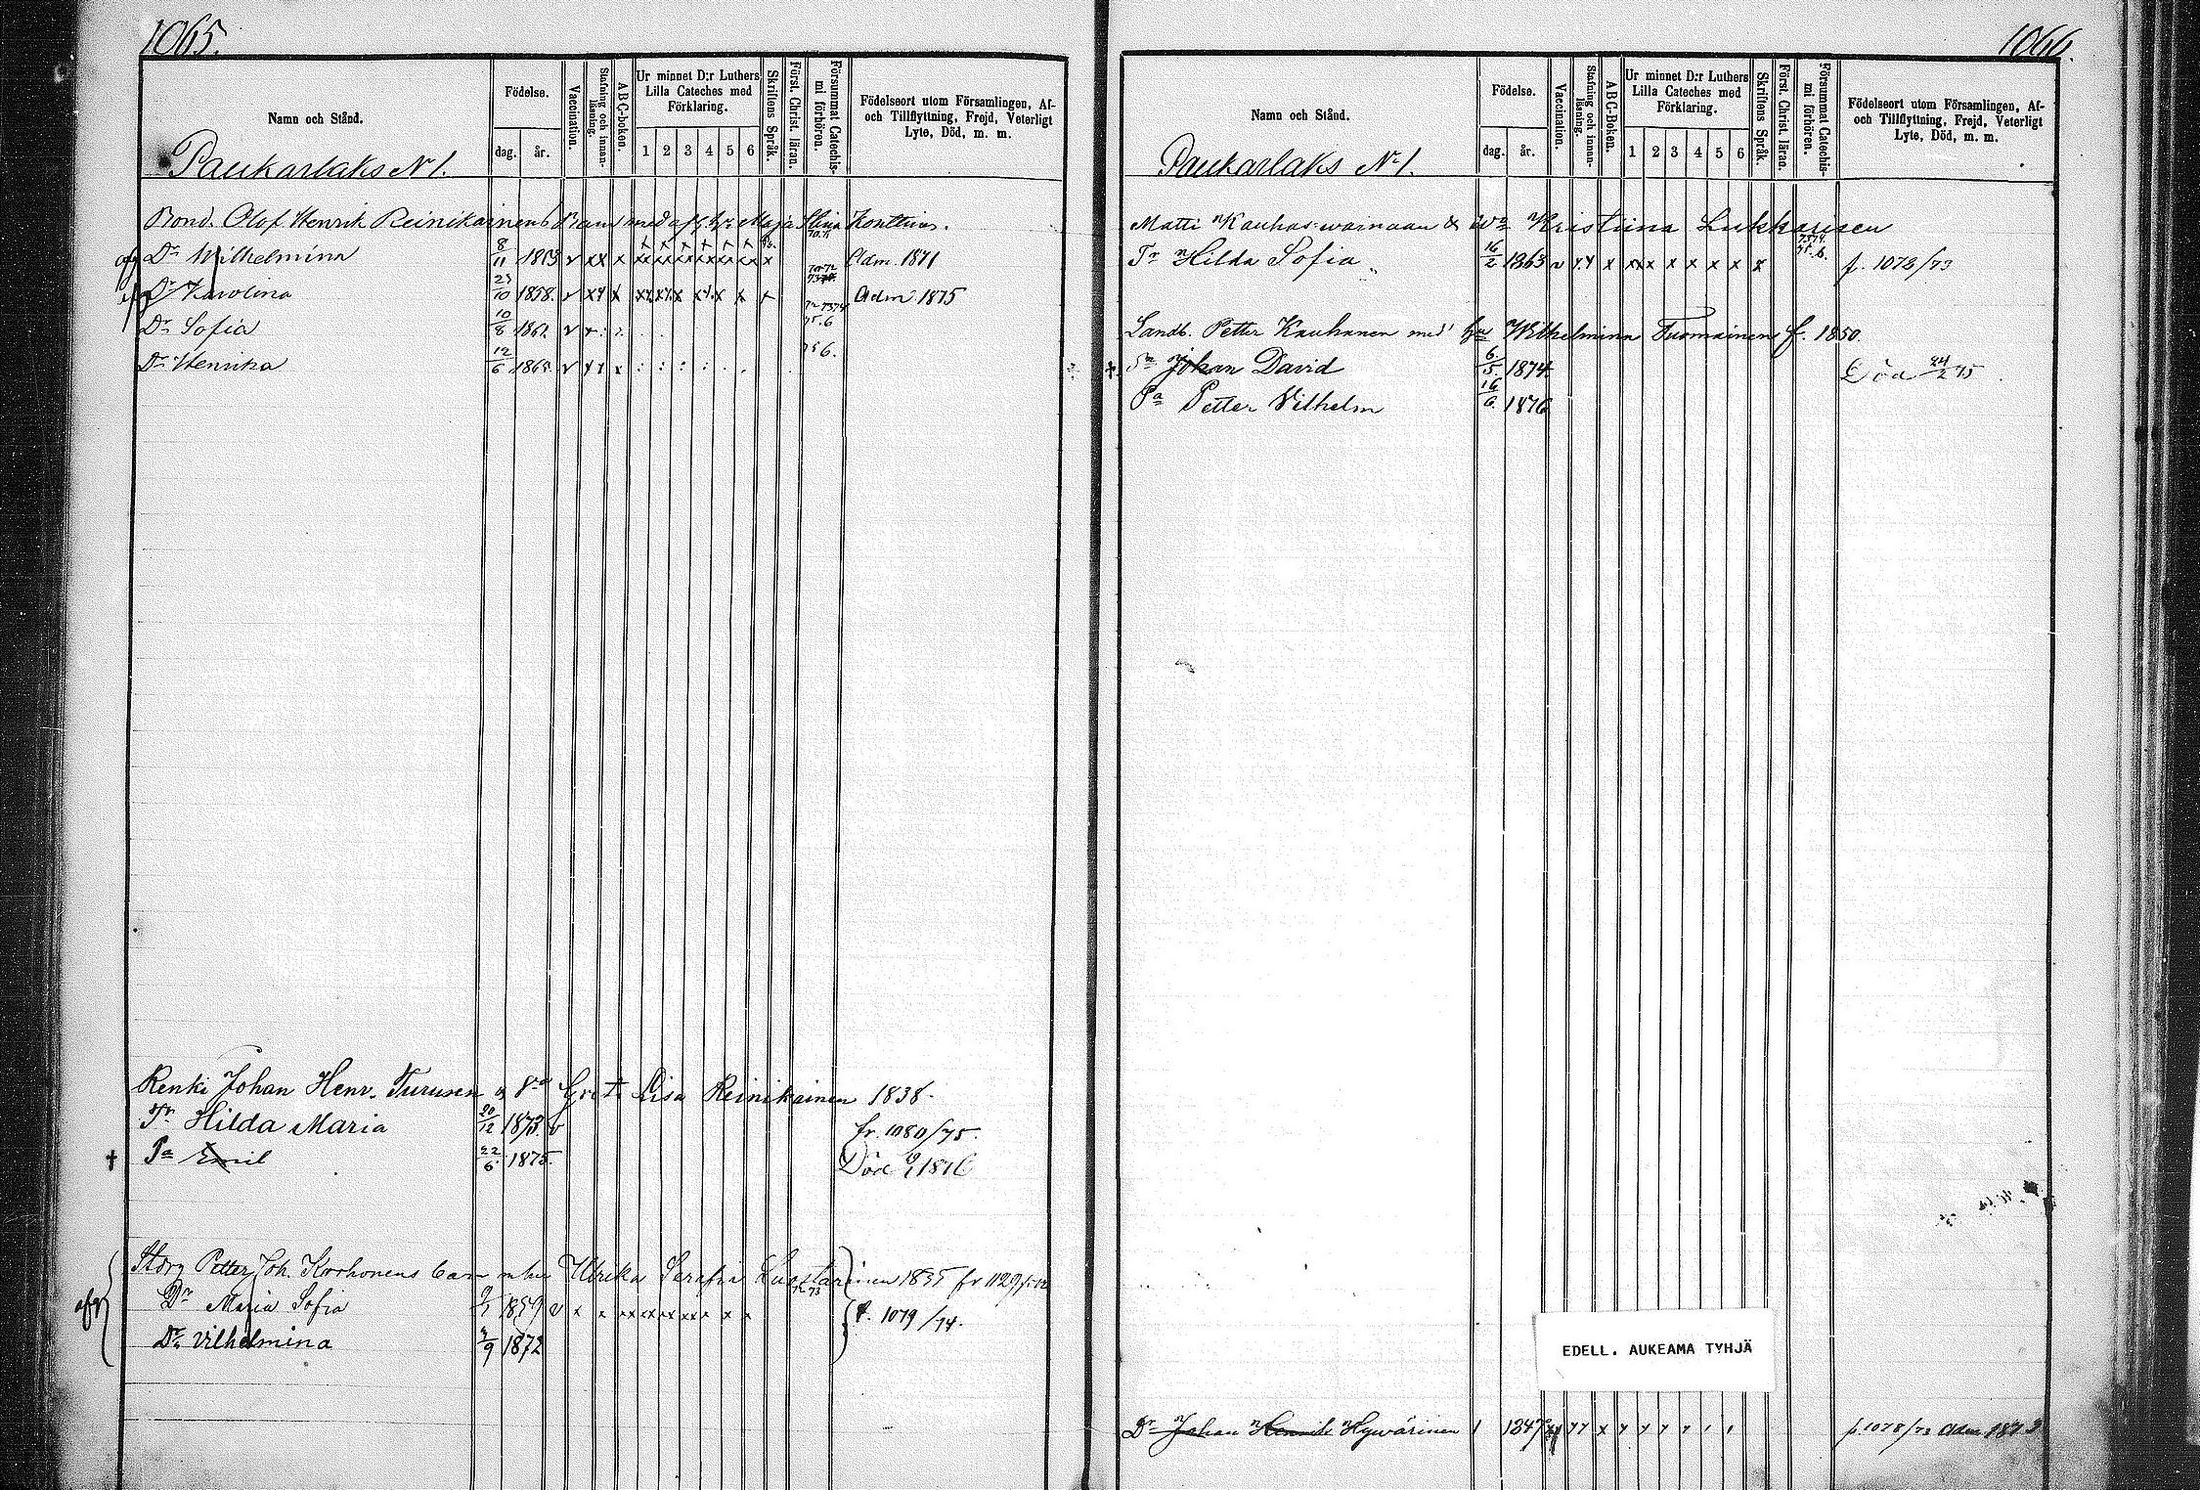 1065.
Namn och Stånd.
Födelse.
dag. år.
Vaccination.
Stafning och innan-läsning.
ABC-boken.
Ur minnet D:r Luthers Lilla Cateches med Förklaring.
1 2 3 4 5 6
Skriftens Språk.
Först. Christ. läran.
Försummat Catechis-mi förhören.
Födelseort utom Församlingen, Af-
och Tillflyttning, Frejd, Veterligt
Lyte, Död, m. m.
Paukarlaks N 1.
Bond. Olof Henrik Reinikainens barn med afl. hu Maja Stina Konttinen.
Dr Wilhelmina 8/11 1853 v xx x Adm. 1871
Dr Karolina 23/10 1858. v Adm 1875
Dr Sofia 10/8 1862 v
Dr Henrika 12/6 1865 v
Renki Johan Henr. Turusen Lisa Reinikainen 1838.
Tr Hilda Maria 20/12 1873. v fr. 1080/75.
† Pa Emil 22/6 1875. Död 1876
Petter Joh. Korhonens barn m hu Ulrika Serafia Luostarinen 1835 fr 1129
afg Dr Maria Sofia 1859 v f. 1079/74.
Dr Vilhelmina 2/9 1872
1066.
Namn och Stånd.
Födelse.
dag. år.
Vaccination.
Stafning och innan-läsning.
ABC-Boken.
Ur minnet D:r Luthers Lilla Cateches med Förklaring.
1 2 3 4 5 6
Skriftens Språk.
Först. Christ. läran.
Försummat Catechis-mi förhören.
Födelseort utom Församlingen, Af-
och Tillflyttning, Frejd, Veterligt
Lyte, Död, m. m.
Paukarlaks No 1.
Matti Kauhas-wainaan & Kristiina Lukkarisen
Tr Hilda Sofia 16/2 1863 v x x x x x x x f. 1073/73
Landb. Petter Kauhanen med hu Wilhelmina Tuomainen f. 1850.
†. Sn Johan David 6/5 1874 Död 24/2 75
Pa Petter Vilhelm 16/6 1876
EDELL. AUKEAMA TYHJÄ
Dr Johan Henrik Hywärinen 1847 f. 1078/73 Adm 1873